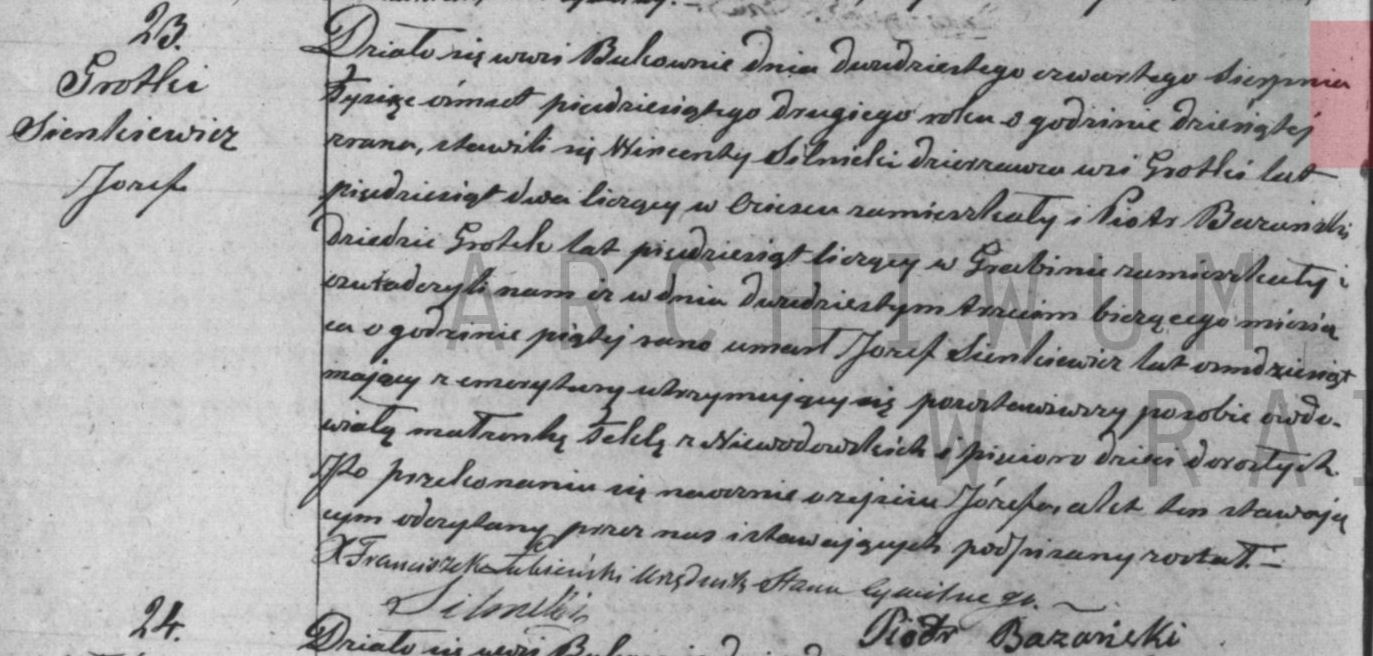 23.
Grotki
Sienkiewicz
Jozef
Działo się wewsi Bukownie dnia dwudziestego czwartego Sierpnia
tysiąc ośmset pięćdziesiątego drugiego roku o godzinie dziesiątej
zrana, stawili się Wincenty Silnicki dzierzawca wsi Grotki lat
pięćdziesiąt dwa liczący w zamieszkały i Piotr Bazański
dziedzic Grotek lat pięćdziesiąt liczący w Grabinie zamieszkały i
oswiadczyli nam iz w dniu dwudziestym trzecim bieżącego miesią
ca o godzinie piątej rano umarł Jozef Sienkiewicz lat osmdziesiąt
mający z emerytury utrzymujący się pozostawiwszy posobie owdo-
wiałą małżonkę Teklę z Niewodowskich i pięcioro dzieci dorosłych.
Po przekonaniu się naocznie o zejściu Józefa, akt ten stawają
cym odczytany przez nas i stawających podpisany został.-
X Franciszek Łubieński Urzędnik Stanu Cywilnego.
Silnicki
Piotr Bazański
24.
Działo się wewsi
ARCHIWUM
W RA